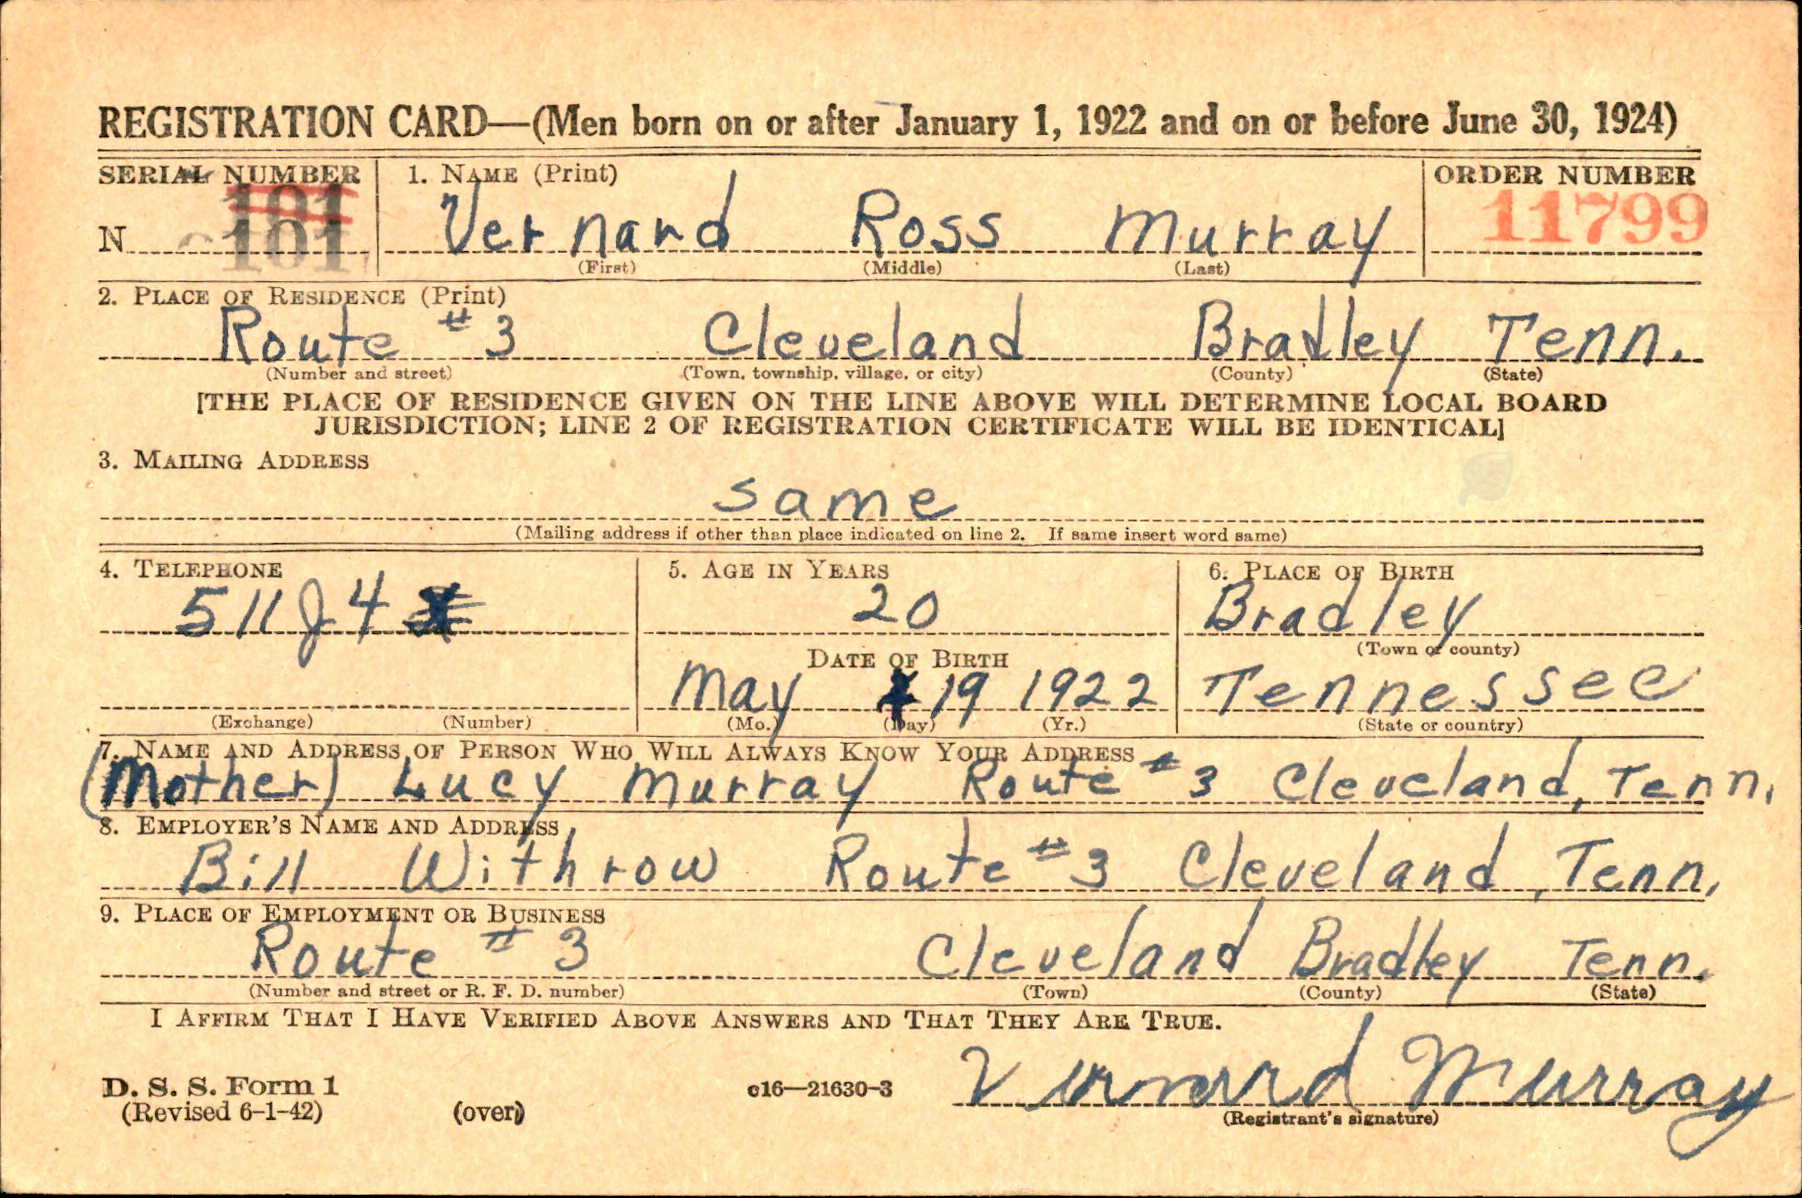 REGISTRATION CARD—(Men born on or after January 1, 1922 and on or before June 30, 1924)
SERIAL NUMBER 1. NAME (Print) ORDER NUMBER
101
N 101 Vernard Ross Murray 11799
(First) (Middle) (Last)
2. PLACE OF RESIDENCE (Print)
Route #3 Cleveland Bradley Tenn.
(Number and street) (Town, township, village, or city) (County) (State)
[THE PLACE OF RESIDENCE GIVEN ON THE LINE ABOVE WILL DETERMINE LOCAL BOARD
JURISDICTION; LINE 2 OF REGISTRATION CERTIFICATE WILL BE IDENTICAL]
3. MAILING ADDRESS
same
(Mailing address if other than place indicated on line 2. If same insert word same)
4. TELEPHONE 5. AGE IN YEARS 6. PLACE OF BIRTH
511J4 20 Bradley
(Town or county)
DATE OF BIRTH
May 19 1922 Tennessee
(Exchange) (Number) (Mo.) (Day) (Yr.) (State or country)
7. NAME AND ADDRESS OF PERSON WHO WILL ALWAYS KNOW YOUR ADDRESS
(Mother) Lucy Murray Route #3 Cleveland, Tenn.
8. EMPLOYER'S NAME AND ADDRESS
Bill Withrow Route #3 Cleveland, Tenn.
9. PLACE OF EMPLOYMENT OR BUSINESS
Route #3 Cleveland Bradley Tenn.
(Number and street or R. F. D. number) (Town) (County) (State)
I AFFIRM THAT I HAVE VERIFIED ABOVE ANSWERS AND THAT THEY ARE TRUE.
D. S. S. Form 1 c16—21630-3 Vernard Murray
(Revised 6-1-42) (over) (Registrant's signature)